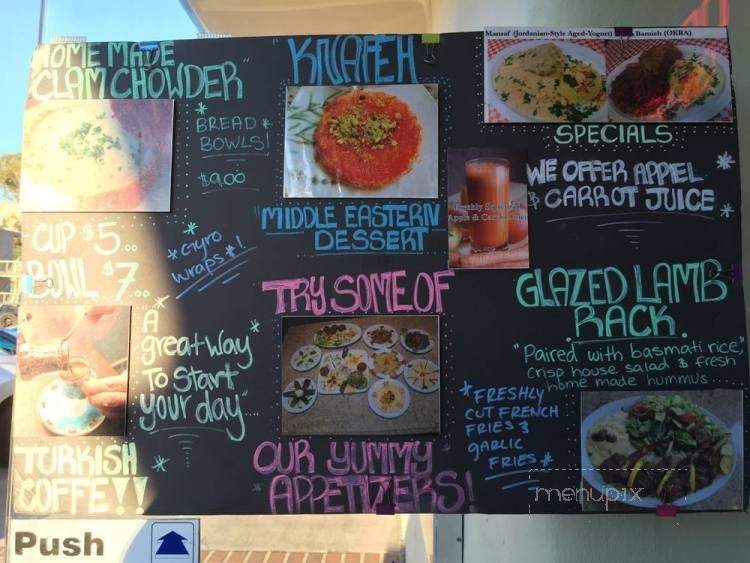 HOME MADE
CLAM CHOWDER"
BREAD
BOWLS!
$9.00
CUP $5...
BOWL $7...
Gyro
wraps!
A
great way
To Start
your day"...
TURKISH
COFFE!!
"KNAFEH
"MIDDLE EASTERN
DESSERT
TRY SOME OF
OUR YUMMY
APPETIZERS!
Mansaf (Jordanian-Style Aged-Yogurt)
Bamieh (OKRA)
SPECIALS
WE OFFER APPEL
& CARROT JUICE
Freshly
Apple & Carrot
GLAZED LAMB
RACK
"Paired with basmati rice,
Crisp house salad & fresh
home made hummus
FRESHLY
CUT FRENCH
FRIES &
GARLIC
FRIES
menupix
Push